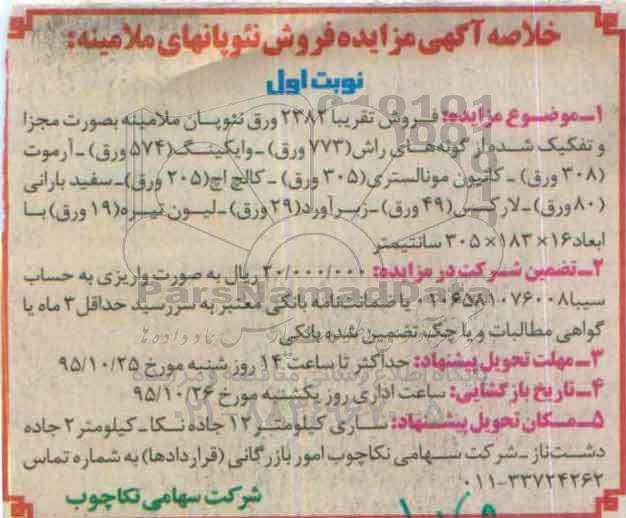 خلاصه آگهی مزایده فروش نئوپانهای ملامینه:
نوبت اول
۱ــ موضوع مزایده: فروش تقریبا ۲۳۸۲ ورق نئوپان ملامینه بصورت مجزا
و تفکیک شده از گونه‌های راش (۷۷۳ ورق) ــ وایکینگ (۵۷۴ ورق) ــ آرموت
(۳۰۸ ورق) ــ کاتیون مونالستری (۳۰۵ ورق) ــ کالج اچ (۲۰۵ ورق) ــ سفید بارانی
(۸۰ ورق) ــ لارکس (۴۹ ورق) ــ زبرآورد (۲۹ ورق) ــ لیون تیره (۱۹ ورق) با
ابعاد ۱۶ × ۱۸۳ × ۳۰۵ سانتیمتر
۲ــ تضمین شرکت در مزایده: ۲۰/۰۰۰/۰۰۰ ریال به صورت واریزی به حساب
سیبا ۰۲۰۶۵۸۱۰۷۶۰۰۸ یا ضمانتنامه بانکی معتبر به سررسید حداقل ۳ ماه یا
گواهی مطالبات و یا چک تضمین شده بانکی
۳ــ مهلت تحویل پیشنهاد: حداکثر تا ساعت ۱۴ روز شنبه مورخ ۹۵/۱۰/۲۵
۴ــ تاریخ بازگشایی: ساعت اداری روز یکشنبه مورخ ۹۵/۱۰/۲۶
۵ــ مکان تحویل پیشنهاد: ساری کیلومتر ۱۲ جاده نکا ــ کیلومتر ۲ جاده
دشت‌ناز ــ شرکت سهامی نکاچوب امور بازرگانی (قراردادها) به شماره تماس
۰۱۱-۳۳۷۲۴۲۶۲
شرکت سهامی نکاچوب
ParsNamadData